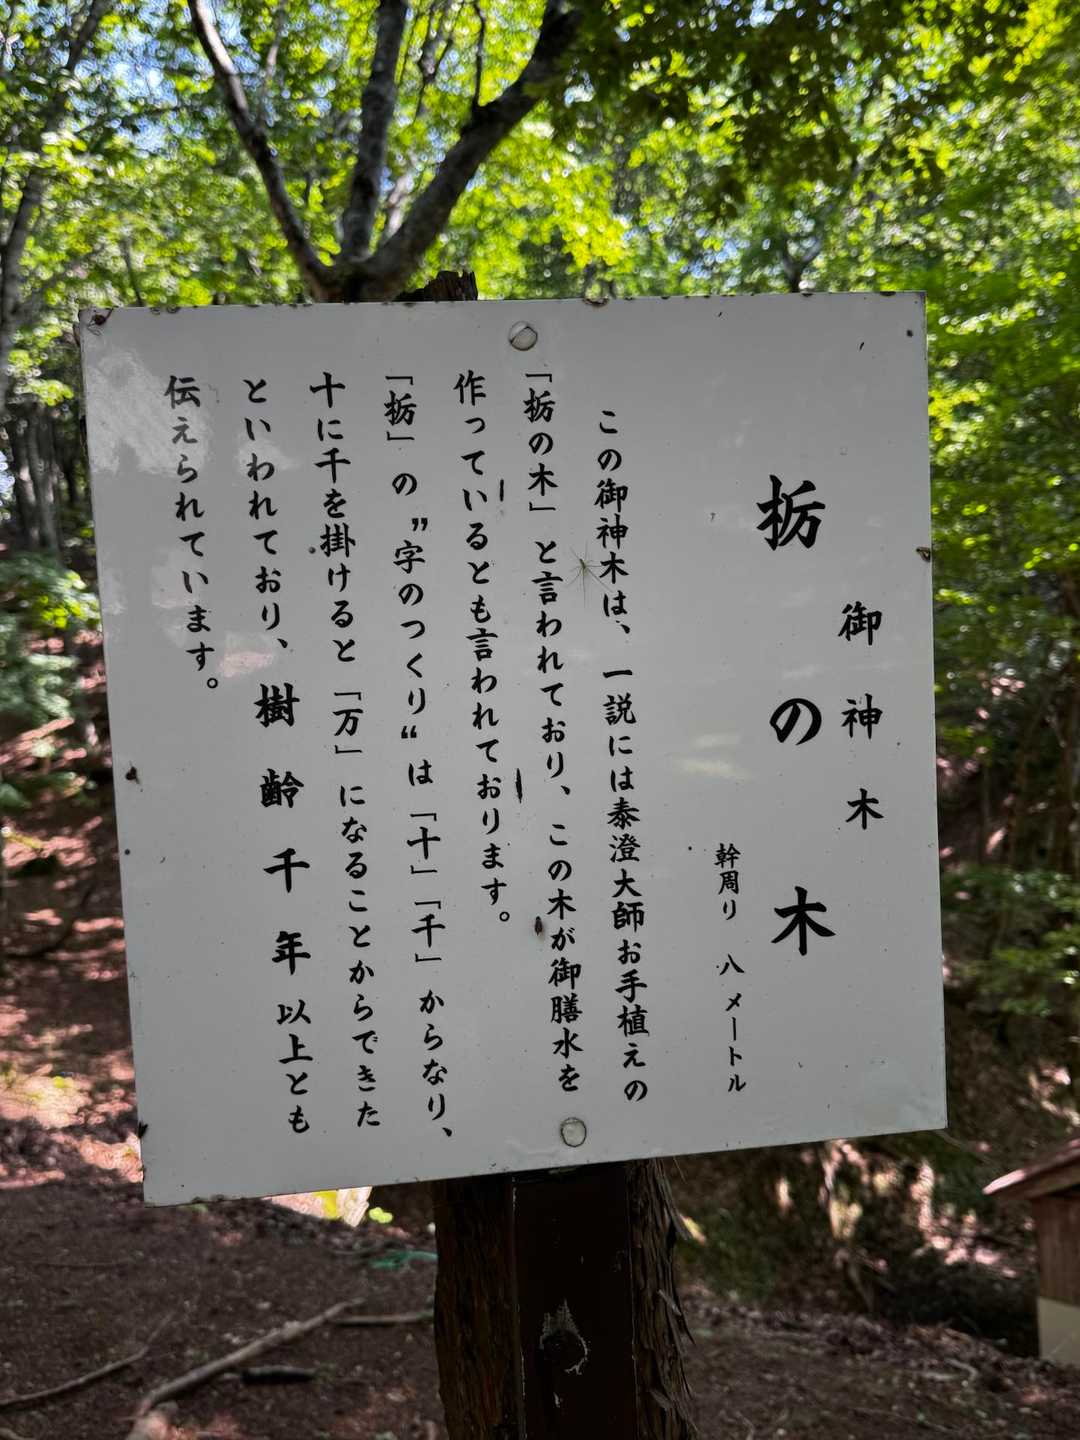 御神木
栃の木
幹周り 八メートル
この御神木は、一説には泰澄大師お手植えの
「栃の木」と言われており、この木が御膳水を
作っているとも言われております。
「栃」の”字のつくり“は「十」「千」からなり、
十に千を掛けると「万」になることからできた
といわれており、樹齢千年以上とも
伝えられています。